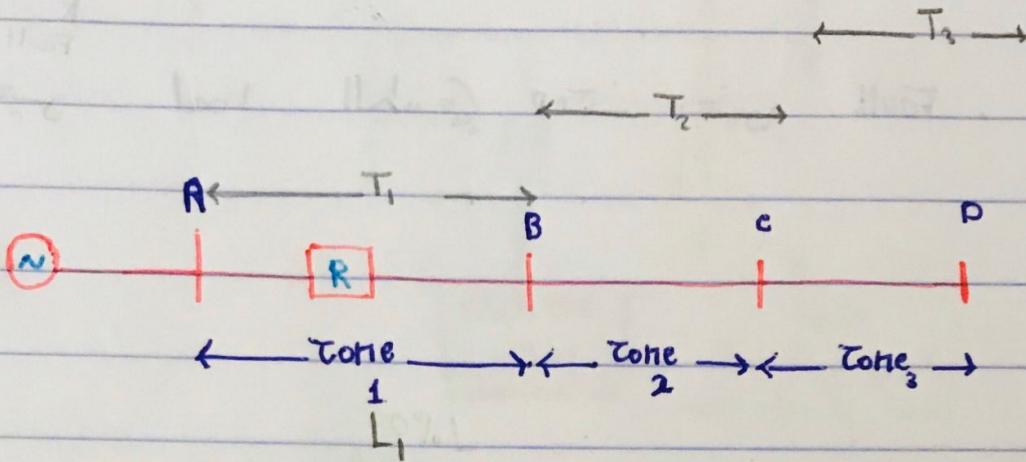 T₃
T₂
A T₁
B C D
~ R
Zone 1 Zone 2 Zone 3
L₁